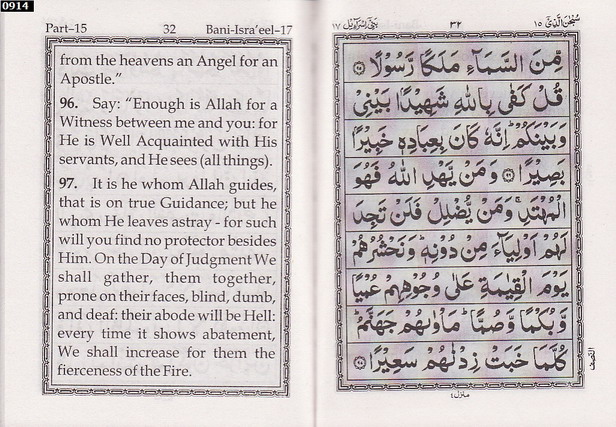 0914
Part–15 32 Bani-Isra'eel–17
from the heavens an Angel for an
Apostle."
96. Say: "Enough is Allah for a
Witness between me and you: for
He is Well Acquainted with His
servants, and He sees (all things).
97. It is he whom Allah guides,
that is on true Guidance; but he
whom He leaves astray - for such
will you find no protector besides
Him. On the Day of Judgment We
shall gather, them together,
prone on their faces, blind, dumb,
and deaf: their abode will be Hell:
every time it shows abatement,
We shall increase for them the
fierceness of the Fire.
سُبْحٰنَ الَّذِيْٓ ١٥ ٣٢ بَنِيْٓ اِسْرَآءِيْل ١٧
مِّنَ السَّمَآءِ مَلَكًا رَّسُوْلًا ۝٩٥
قُلْ كَفٰى بِاللّٰهِ شَهِيْدًۢا بَيْنِيْ
وَبَيْنَكُمْ ؕ اِنَّهٗ كَانَ بِعِبَادِهٖ خَبِيْرًۢا
بَصِيْرًا ۝٩٦ وَمَنْ يَّهْدِ اللّٰهُ فَهُوَ
الْمُهْتَدِ ۚ وَمَنْ يُّضْلِلْ فَلَنْ تَجِدَ
لَهُمْ اَوْلِيَآءَ مِنْ دُوْنِهٖ ؕ وَنَحْشُرُهُمْ
يَوْمَ الْقِيٰمَةِ عَلٰى وُجُوْهِهِمْ عُمْيًا
وَّبُكْمًا وَّصُمًّا ؕ مَاْوٰىهُمْ جَهَنَّمُ ؕ
كُلَّمَا خَبَتْ زِدْنٰهُمْ سَعِيْرًا ۝٩٧
النصف
منزل ٤